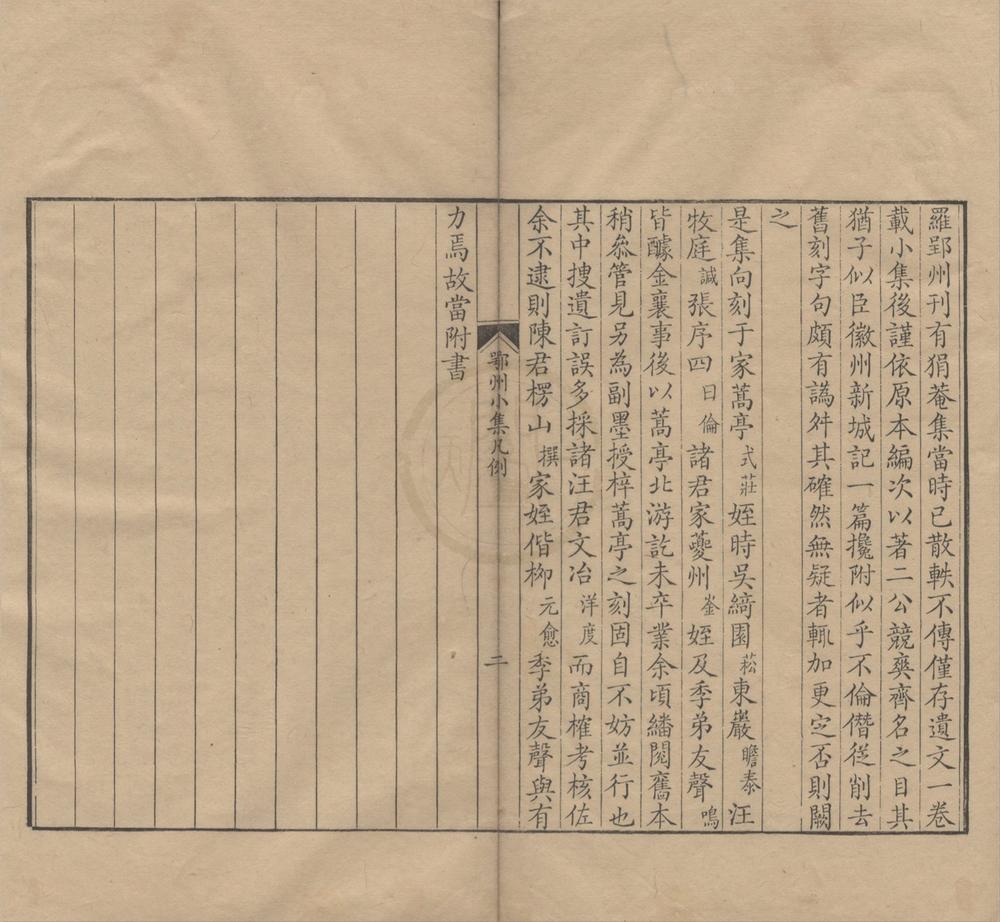 羅郢州刊有狷菴集當時已散軼不傳僅存遺文一卷
載小集後謹依原本編次以著二公競爽齊名之目其
猶子似臣徽州新城記一篇攙附似乎不倫僭從削去
舊刻字句頗有譌舛其確然無疑者輒加更定否則闕
之
是集向刻于家蒿亭式莊姪時吳綺園菘東巖瞻泰汪
牧庭誠張序四曰倫諸君家夔州崟姪及季弟友聲鳴
皆醵金襄事後以蒿亭北游訖未卒業余頃繙閱舊本
稍叅管見另為副墨授梓蒿亭之刻固自不妨並行也
其中搜遺訂誤多採諸汪君文冶洋度而商榷考核佐
余不逮則陳君楞山撰家姪偕栁元愈季弟友聲與有
鄂州小集凡例
二
力焉故當附書